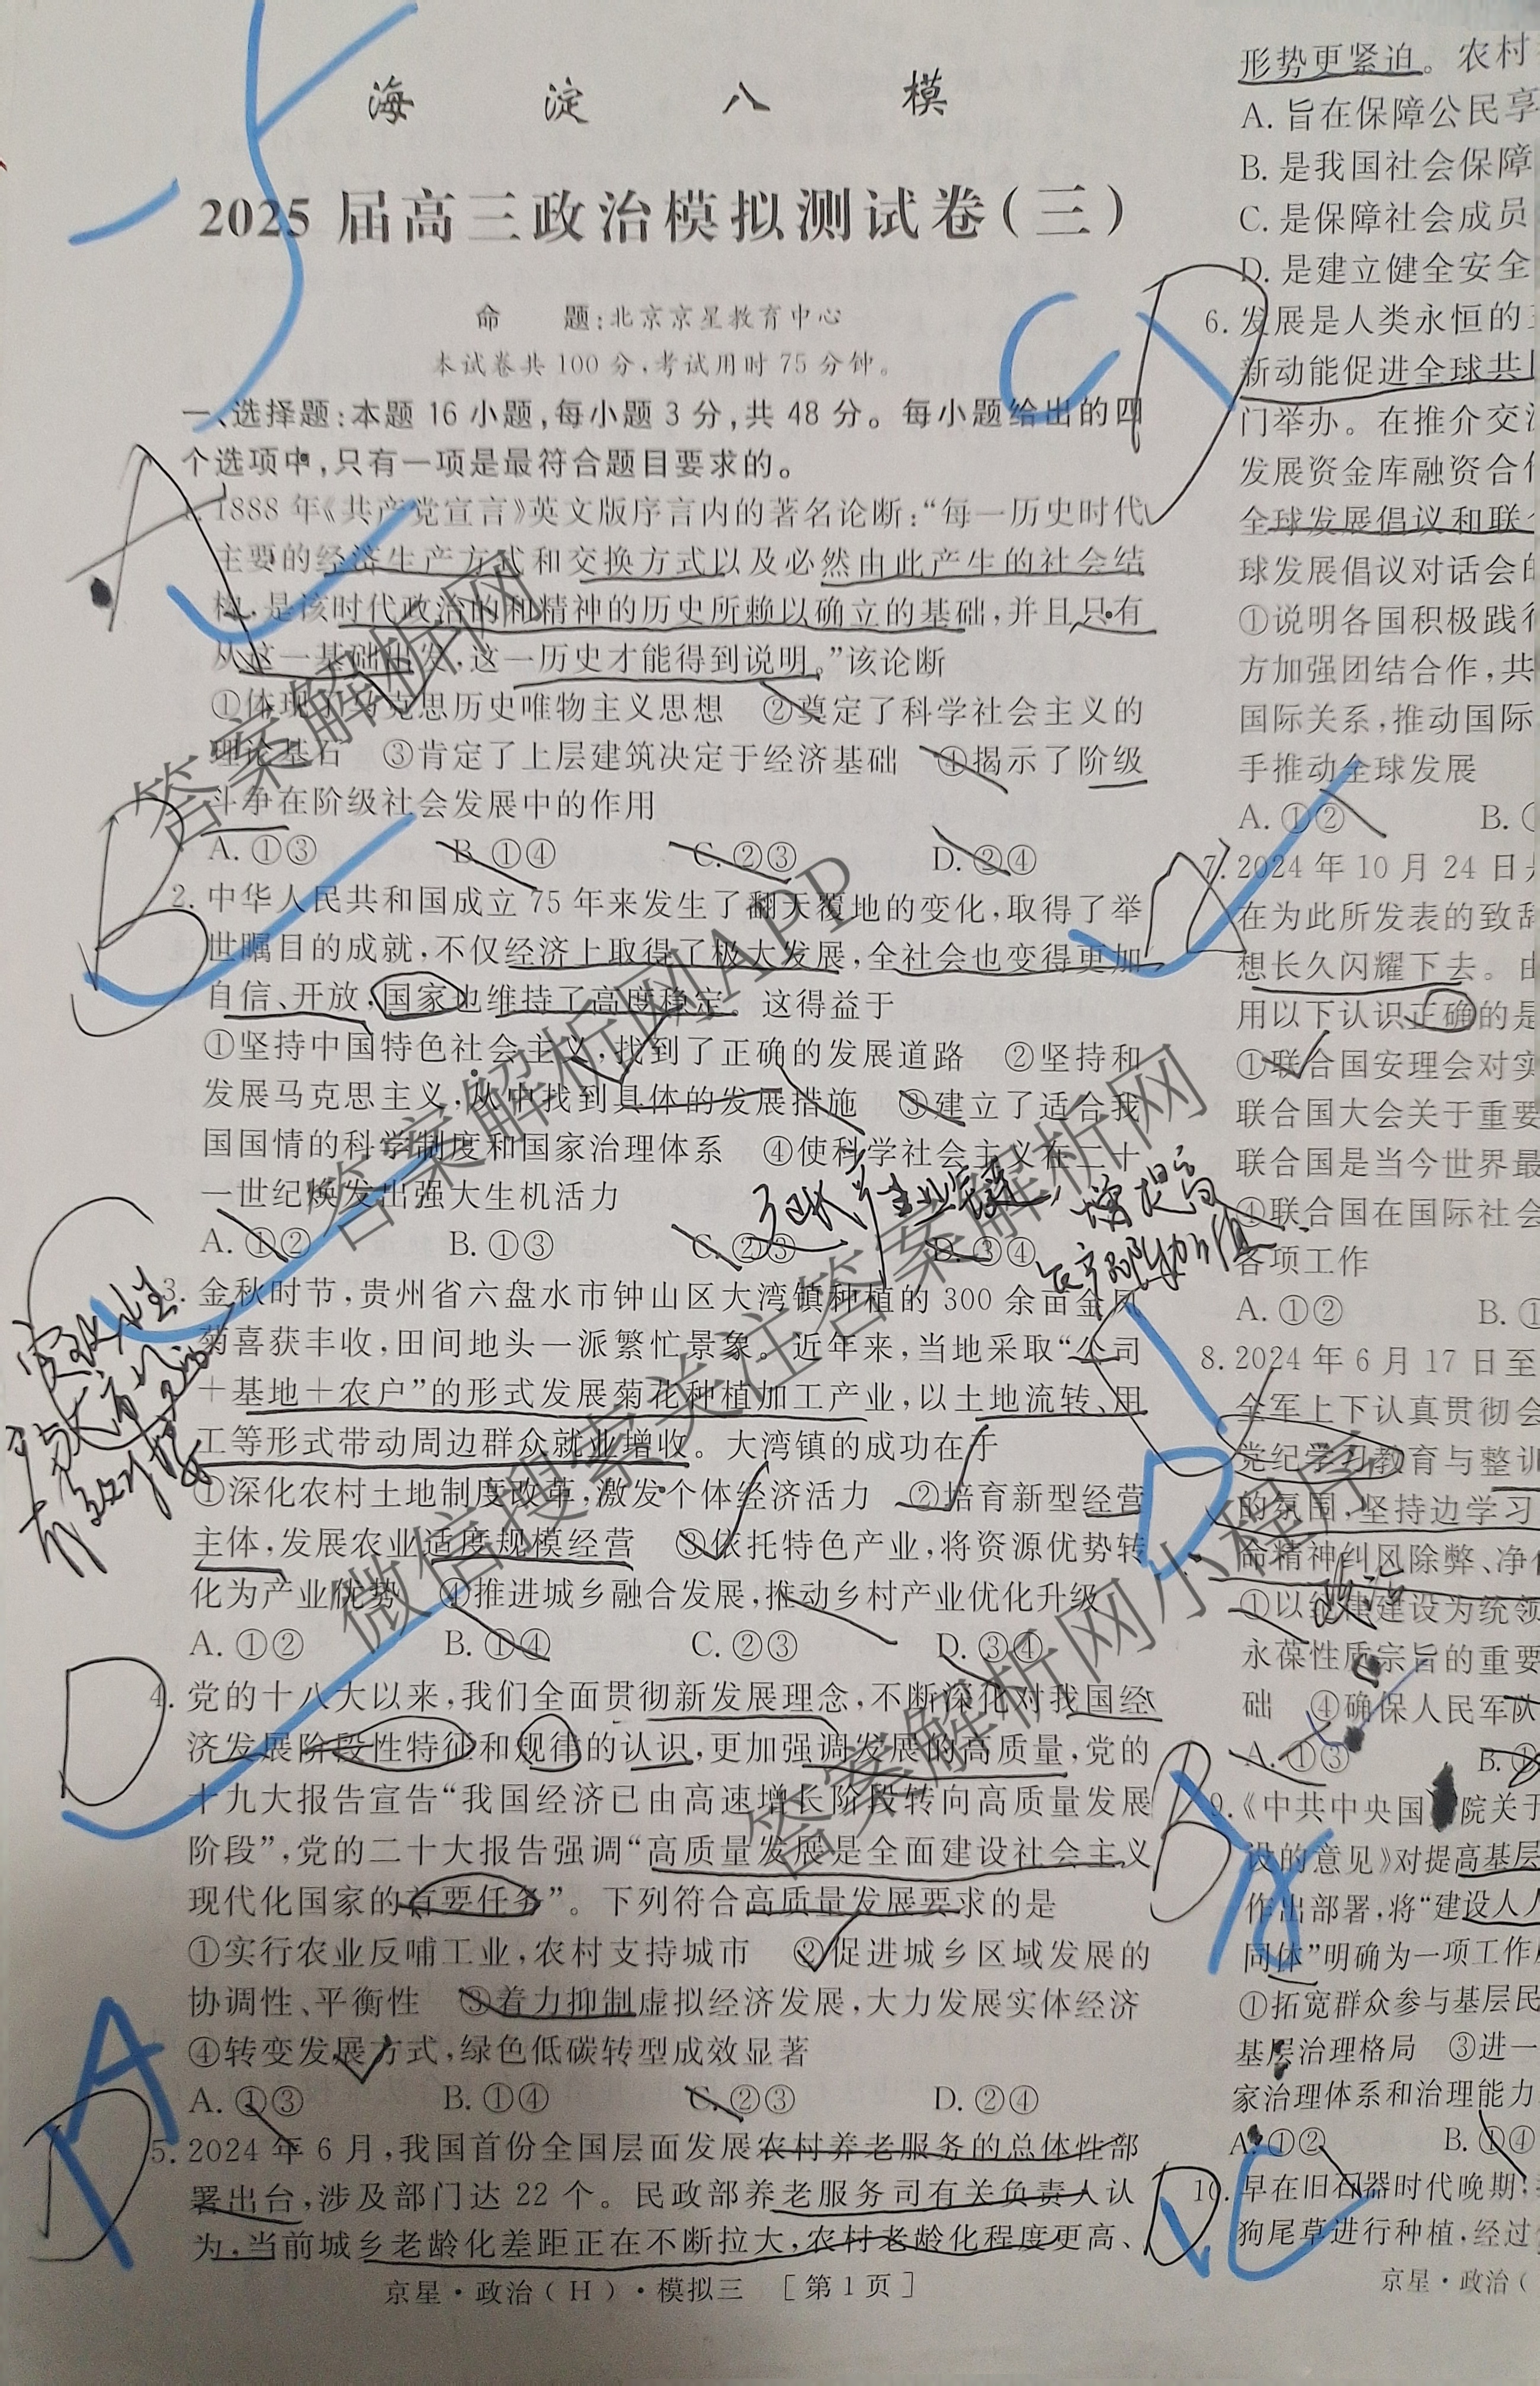 海淀八模
2025届高三政治模拟测试卷(三)
命 题:北京京星教育中心
本试卷共100分,考试用时75分钟。
一、选择题:本题16小题,每小题3分,共48分。每小题给出的四
个选项中,只有一项是最符合题目要求的。
1. 1888年《共产党宣言》英文版序言内的著名论断:“每一历史时代
主要的经济生产方式和交换方式以及必然由此产生的社会结
构,是该时代政治的和精神的历史所赖以确立的基础,并且只有
从这一基础出发,这一历史才能得到说明。”该论断
①体现了马克思历史唯物主义思想 ②奠定了科学社会主义的
理论基石 ③肯定了上层建筑决定于经济基础 ④揭示了阶级
斗争在阶级社会发展中的作用
A. ①③ B. ①④ C. ②③ D. ②④
2. 中华人民共和国成立75年来发生了翻天覆地的变化,取得了举
世瞩目的成就,不仅经济上取得了极大发展,全社会也变得更加
自信、开放,国家也维持了高度稳定。这得益于
①坚持中国特色社会主义,找到了正确的发展道路 ②坚持和
发展马克思主义,从中找到具体的发展措施 ③建立了适合我
国国情的科学制度和国家治理体系 ④使科学社会主义在二十
一世纪焕发出强大生机活力
A. ①② B. ①③ C. ②③ D. ③④
3. 金秋时节,贵州省六盘水市钟山区大湾镇种植的300余亩金凤
菊喜获丰收,田间地头一派繁忙景象。近年来,当地采取“公司
+基地+农户”的形式发展菊花种植加工产业,以土地流转、用
工等形式带动周边群众就业增收。大湾镇的成功在于
①深化农村土地制度改革,激发个体经济活力 ②培育新型经营
主体,发展农业适度规模经营 ③依托特色产业,将资源优势转
化为产业优势 ④推进城乡融合发展,推动乡村产业优化升级
A. ①② B. ①④ C. ②③ D. ③④
4. 党的十八大以来,我们全面贯彻新发展理念,不断深化对我国经
济发展阶段性特征和规律的认识,更加强调发展的高质量,党的
十九大报告宣告“我国经济已由高速增长阶段转向高质量发展
阶段”,党的二十大报告强调“高质量发展是全面建设社会主义
现代化国家的首要任务”。下列符合高质量发展要求的是
①实行农业反哺工业,农村支持城市 ②促进城乡区域发展的
协调性、平衡性 ③着力抑制虚拟经济发展,大力发展实体经济
④转变发展方式,绿色低碳转型成效显著
A. ①③ B. ①④ C. ②③ D. ②④
5. 2024年6月,我国首份全国层面发展农村养老服务的总体性部
署出台,涉及部门达22个。民政部养老服务司有关负责人认
为,当前城乡老龄化差距正在不断拉大,农村老龄化程度更高、
京星·政治(H)·模拟三 [第1页]
形势更紧迫。农村
A. 旨在保障公民享
B. 是我国社会保障
C. 是保障社会成员
D. 是建立健全安全
6. 发展是人类永恒的
新动能促进全球共
门举办。在推介交
发展资金库融资合
全球发展倡议和联
球发展倡议对话会
①说明各国积极践
方加强团结合作,共
国际关系,推动国际
手推动全球发展
A. ①② B.
7. 2024年10月24日
在为此所发表的致辞
想长久闪耀下去。
用以下认识正确的是
①联合国安理会对实
联合国大会关于重要
联合国是当今世界最
④联合国在国际社会
各项工作
A. ①② B.
8. 2024年6月17日至
全军上下认真贯彻会
党纪学习教育与整训
的氛围,坚持边学习
命精神纠风除弊、净
①以 建设为统领
永葆性质宗旨的重要
础 ④确保人民军队
A. ①③ B.
9. 《中共中央国 院关于
设的意见》对提高基层
作出部署,将“建设人人
同体”明确为一项工作
①拓宽群众参与基层民
基层治理格局 ③进一
家治理体系和治理能力
A. ①② B. ①④
10. 早在旧石器时代晚期,
狗尾草进行种植,经过
京星·政治(
答案解析网
答案解析网APP
微信搜索关注答案解析网
答案解析网小程序
A
B
D
D
D
A
D
B
D